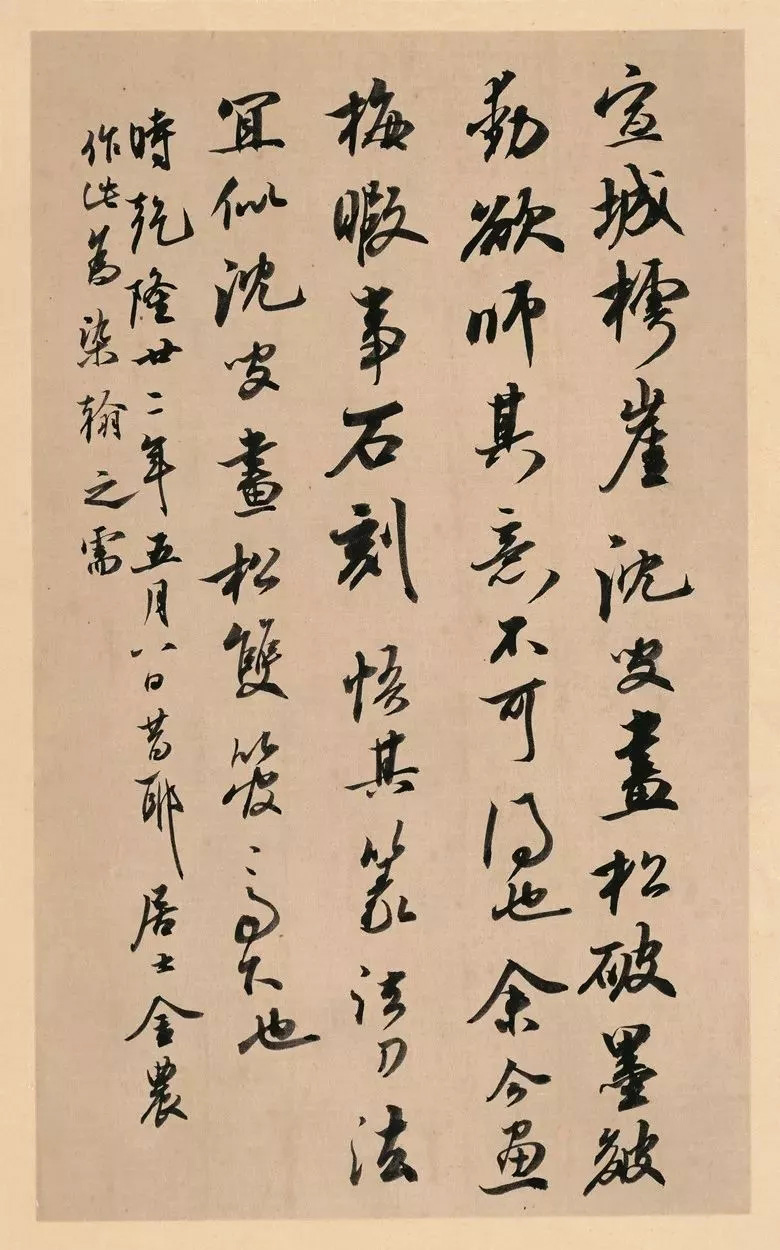 宣城樗崖沈叟畫松破墨皴
欲師其意不可得也余今畫
梅暇事石刻悟其篆法刀法
冝似沈叟畫松雙也
時乾隆廿二年五月八日昔耶居士金農
作此為染翰之需